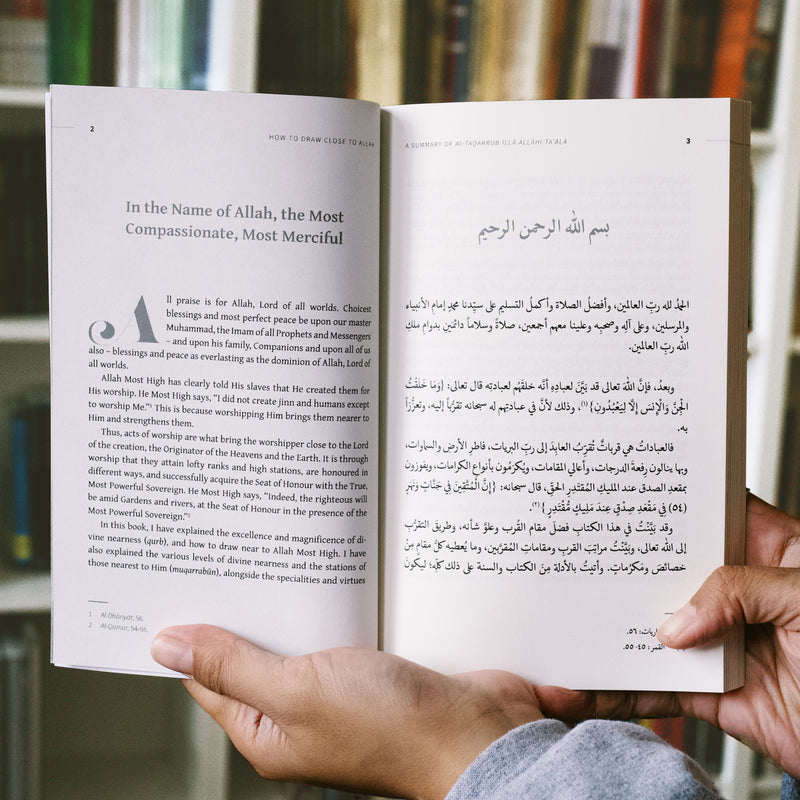 2
HOW TO DRAW CLOSE TO ALLAH
In the Name of Allah, the Most
Compassionate, Most Merciful
All praise is for Allah, Lord of all worlds. Choicest
blessings and most perfect peace be upon our master
Muhammad, the Imam of all Prophets and Messengers
– and upon his family, Companions and upon all of us
also – blessings and peace as everlasting as the dominion of Allah, Lord of
all worlds.
Allah Most High has clearly told His slaves that He created them for
His worship. He Most High says, “I did not create jinn and humans except
to worship Me.”1 This is because worshipping Him brings them nearer to
Him and strengthens them.
Thus, acts of worship are what bring the worshipper close to the Lord
of the creation, the Originator of the Heavens and the Earth. It is through
worship that they attain lofty ranks and high stations, are honoured in
different ways, and successfully acquire the Seat of Honour with the True,
Most Powerful Sovereign. He Most High says, “Indeed, the righteous will
be amid Gardens and rivers, at the Seat of Honour in the presence of the
Most Powerful Sovereign.”2
In this book, I have explained the excellence and magnificence of di-
vine nearness (qurb), and how to draw near to Allah Most High. I have
also explained the various levels of divine nearness and the stations of
those nearest to Him (muqarrabūn), alongside the specialities and virtues
1 Al-Dhāriyāt, 56.
2 Al-Qamar, 54-55.
A SUMMARY OF AL-TAQARRUB ILLĀ ALLĀHI TA'ĀLĀ
3
بسم الله الرحمن الرحيم
الحمدُ لله ربِّ العالمين، وأفضلُ الصلاة وأكملُ التسليم على سيّدنا محمدٍ إمامِ الأنبياء
والمرسلين، وعلى آلِه وصحبِه وعلينا معهم أجمعين، صلاةً وسلاماً دائمَينِ بدوامِ ملكِ
الله ربِّ العالمين.
وبعدُ، فإنَّ اللهَ تعالى قد بَيَّنَ لعبادِه أنَّه خلقَهُم لعبادتِه قال تعالى: {وَمَا خَلَقْتُ
الْجِنَّ وَالْإِنْسَ إِلَّا لِيَعْبُدُونِ}(١)، وذلك لأنَّ في عبادتِهم له سبحانه تقرُّباً إليه، وتعزُّزاً
به.
فالعباداتُ هي قرباتٌ تُقرِّبُ العابدَ إلى ربِّ البريات، فاطرِ الأرضِ والسماوات،
وبها ينالون رِفعةَ الدرجات، وأعالي المقامات، ويُكرَمُون بأنواعِ الكرامات، ويفوزون
بمقعدِ الصدق عند المليكِ المُقتَدِرِ الحقِّ، قال سبحانه: {إِنَّ الْمُتَّقِينَ فِي جَنَّاتٍ وَنَهَرٍ
(٥٤) فِي مَقْعَدِ صِدْقٍ عِندَ مَلِيكٍ مُّقْتَدِرٍ}(٢).
وقد بَيَّنْتُ في هذا الكتابِ فضلَ مقامِ القُرب وعلوَّ شأنِه، وطريقَ التقرُّبِ
إلى الله تعالى، وبَيَّنْتُ مراتبَ القربِ ومقاماتِ المُقرَّبين، وما يُعطيه كلُّ مقامٍ مِنْ
خصائصَ ومَكرُمات. وأتيتُ بالأدلةِ مِنَ الكتاب والسنة على ذلك كلِّه؛ ليكونَ
اريات: ٥٦.
القمر: ٤٥-٥٥.